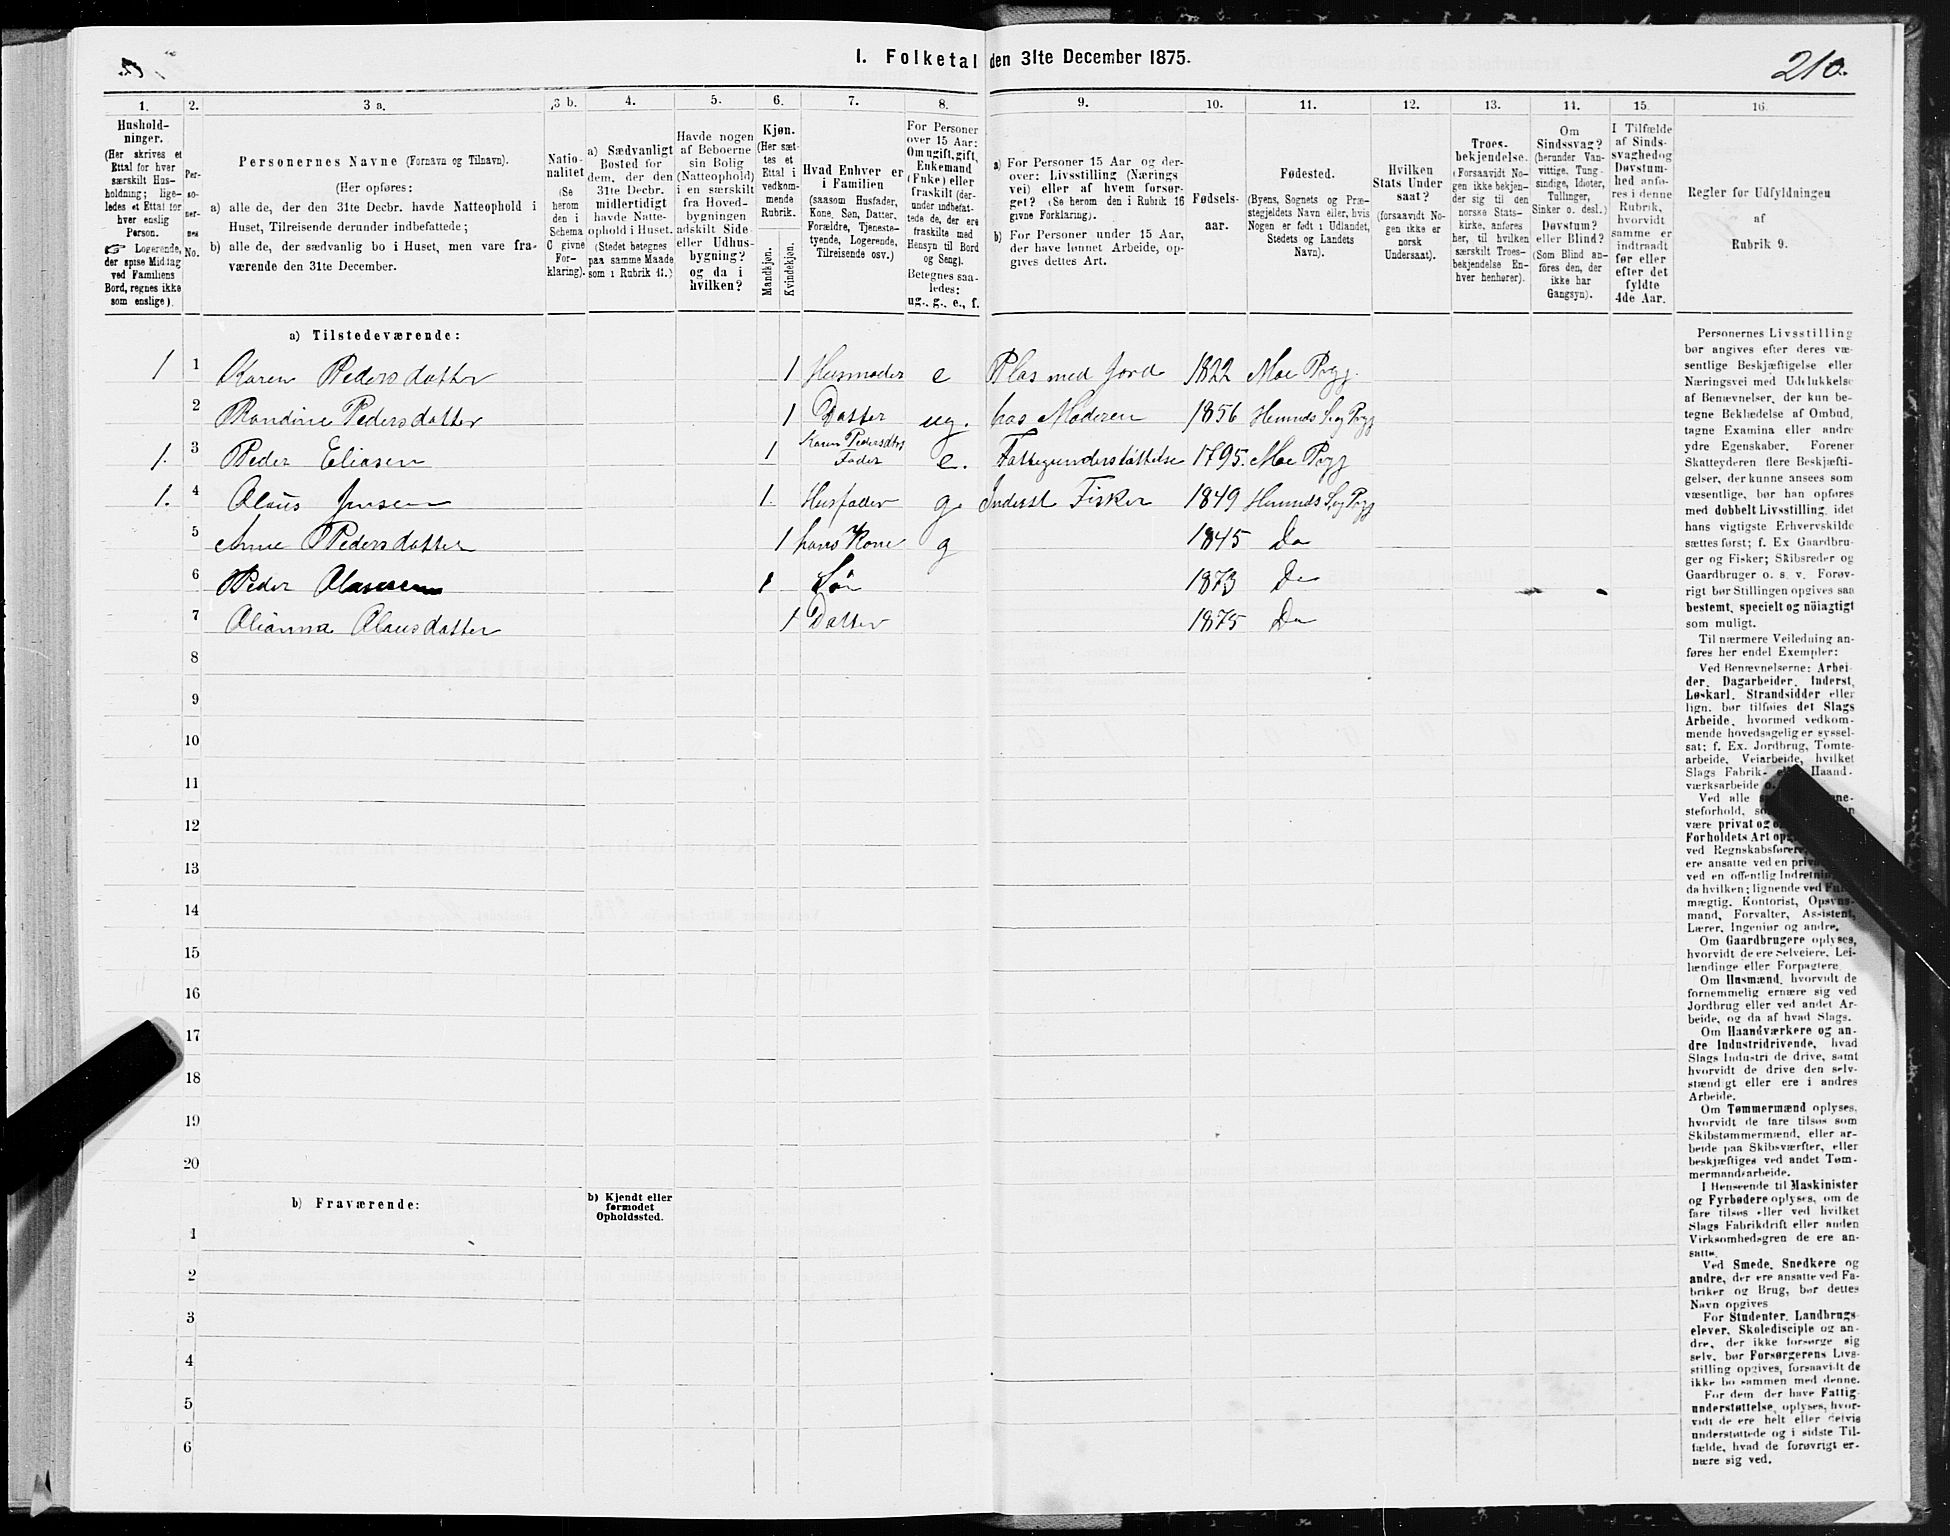 I. Folketal den 31te December 1875.
210.
1. 2. 3 a. 3 b. 4. 5. 6. 7. 8. 9. 10. 11. 12. 13. 14. 15. 16.
Hushold-
ninger.
(Her skrives et
Ettal for hver
særskilt Hus-
holdning; lige-
ledes et Ettal for
hver enslig
Person.
☞ Logerende,
der spise Middag
ved Familiens
Bord, regnes ikke
som enslige).
Per-
so-
ner-
nes
No.
Personernes Navne (Fornavn og Tilnavn).
(Her opføres:
a) alle de, der den 31te Decbr. havde Natteophold i
Huset, Tilreisende derunder indbefattede;
b) alle de, der sædvanlig bo i Huset, men vare fra-
værende den 31te December.
Natio-
nalitet
(Se
herom
den i
Schema
C givne
For-
klaring).
a) Sædvanligt
Bosted for
dem, der den
31te Decbr.
midlertidigt
havde Natte-
ophold i Huset.
(Stedet betegnes
paa samme Maade
som i Rubrik 11.)
Havde nogen
af Beboerne
sin Bolig
(Natteophold)
i en særskilt
fra Hoved-
bygningen
adskilt Side-
eller Udhus-
bygning?
og da i
hvilken?
Kjøn.
(Her sæt-
tes et
Ettal i
vedkom-
mende
Rubrik.
Mandkjøn.
Kvindekjøn.
Hvad Enhver er
i Familien
(saasom Husfader,
Kone, Søn, Datter,
Forældre, Tjeneste-
tyende, Logerende,
Tilreisende osv.)
For Personer
over 15 Aar:
Om ugift, gift,
Enkemand
(Enke) eller
fraskilt (der-
under indbefat-
tede de, der ere
fraskilte med
Hensyn til Bord
og Seng).
Betegnes saa-
ledes:
ug., g., e., f.
a) For Personer 15 Aar og der-
over: Livsstilling (Nærings
vei) eller af hvem forsør-
get? (Se herom den i Rubrik 16
givne Forklaring).
b) For Personer under 15 Aar,
der have lønnet Arbeide, op-
gives dettes Art.
Fødsels-
aar.
Fødested.
(Byens, Sognets og Præ-
stegjeldets Navn eller, hvis
Nogen er født i Udlandet,
Stedets og Landets
Navn).
Hvilken
Stats Under
saat?
(forsaavidt No-
gen ikke er
norsk
Undersaat).
Troes-
bekjendelse.
(Forsaavidt No-
gen ikke bekjen-
der sig til den
norske Stats-
kirke, anføres
her, til hvilken
særskilt Troes-
bekjendelse En-
hver henhører).
Om
Sindssvag?
(herunder Van-
vittige, Tung-
sindige, Idioter,
Tullinger,
Sinker o. desl.)
Døvstum?
eller Blind?
(Som Blind an-
føres den, der
ikke har
Gangsyn).
I Tilfælde
af Sinds-
svaghed og
Døvstum-
hed anfø-
res i denne
Rubrik,
hvorvidt
samme er
indtraadt
før eller
efter det
fyldte
4de Aar.
Regler for Udfyldningen
af
Rubrik 9.
a) Tilstedeværende:
1 1 Karen Pedersdatter 1 Husmoder e Plas med Jord 1822 Moe Prgj.
2 Randine Pedersdatter 1 Datter ug. hos Moderen 1856 Hemnæs Sog Prgj
1. 3 Peder Eliasen 1 Karen Pedersdtrs
Fader e. Fattigunderstøttelse 1795. Moe Prgj
1. 4 Olaus Jensen 1. Husfader g. Inderst Fisker 1849 Hemnæs Sog Prgj
5 Anne Pedersdatter 1 hans Kone g 1845 Do
6 Peder Olausen 1 Søn 1873 Do
7 Olianna Olausdatter 1 Datter 1875 Do
8
9
10
11
12
13
14
15
16
17
18
19
20
b) Fraværende:
b) Kjendt eller
formodet
Opholdssted.
1
2
3
4
5
6
Personernes Livsstilling
bør angives efter deres væ-
sentlige Beskjæftigelse eller
Næringsvei med Udelukkelse
af Benævnelser, der kun be-
tegne Beklædelse af Ombud,
tagne Examina eller andre
ydre Egenskaber. Forener
Skatteyderen flere Beskjæfti-
gelser, der kunne ansees som
væsentlige, bør han opføres
med dobbelt Livsstilling, idet
hans vigtigste Erhvervskilde
sættes først; f. Ex Gaardbru-
ger og Fisker; Skibsreder og
Gaardbruger o. s. v. Forøv-
rigt bør Stillingen opgives saa
bestemt, specielt og nöiagtigt
som muligt.
Til nærmere Veiledning an-
føres her endel Exempler:
Ved Benævnelserne: Arbei-
der, Dagarbeider, Inderst,
Løskarl, Strandsidder eller
lign. bør tilføies det Slags
Arbeide, hvormed vedkom-
mende hovedsagelig er syssel-
sat; f. Ex. Jordbrug, Tomte-
arbeide, Veiarbeide, hvilket
Slags Fabrik- eller Haand-
værksarbeide
Ved alle
steforhold,
være privat og
Forholdets Art
ved Regnskabsførere,
ere ansatte ved en
ved en offentlig Indretning
da hvilken; lignende ved
mægtig, Kontorist, Opsyns-
mand, Forvalter, Assistent,
Lærer, Ingeniør og andre.
Om Gaardbrugere oplyses,
hvorvidt de ere Selveiere, Lei-
lændinge eller Forpagtere
Om Husmænd, hvorvidt de
fornemmelig ernære sig ved
Jordbrug eller ved andet Ar-
beide, og da af hvad Slags.
Om Haandværkere og an-
dre Industridrivende, hvad
Slags Industri de drive, samt
hvorvidt de drive den selv-
stændigt eller ere i andres
Arbeide.
Om Tømmermænd oplyses,
hvorvidt de fare tilsøs som
Skibstømmermænd, eller ar-
beide paa Skibsværfter, eller
beskjæftiges ved andet Tøm-
mermandsarbeide.
I Henseende til Maskinister
og Fyrbødere oplyses, om de
fare tilsøs eller ved hvilket
Slags Fabrikdrift eller anden
Virksomhedsgren de ere an-
satte.
Ved Smede, Snedkere og
andre, der ere ansatte ved Fa-
briker og Brug, bør dettes
Navn opgives
For Studenter, Landbrugs-
elever, Skoledisciple og an-
dre, der ikke forsørge sig
selv, bør Forsørgerens Livs-
stilling opgives, forsaavidt de
ikke bo sammen med denne.
For dem, der have Fattig-
understøttelse, oplyses, hvor-
vidt de ere helt eller delvis
understøttede og i sidste Til-
fælde, hvad de forøvrigt er-
nære sig ved.